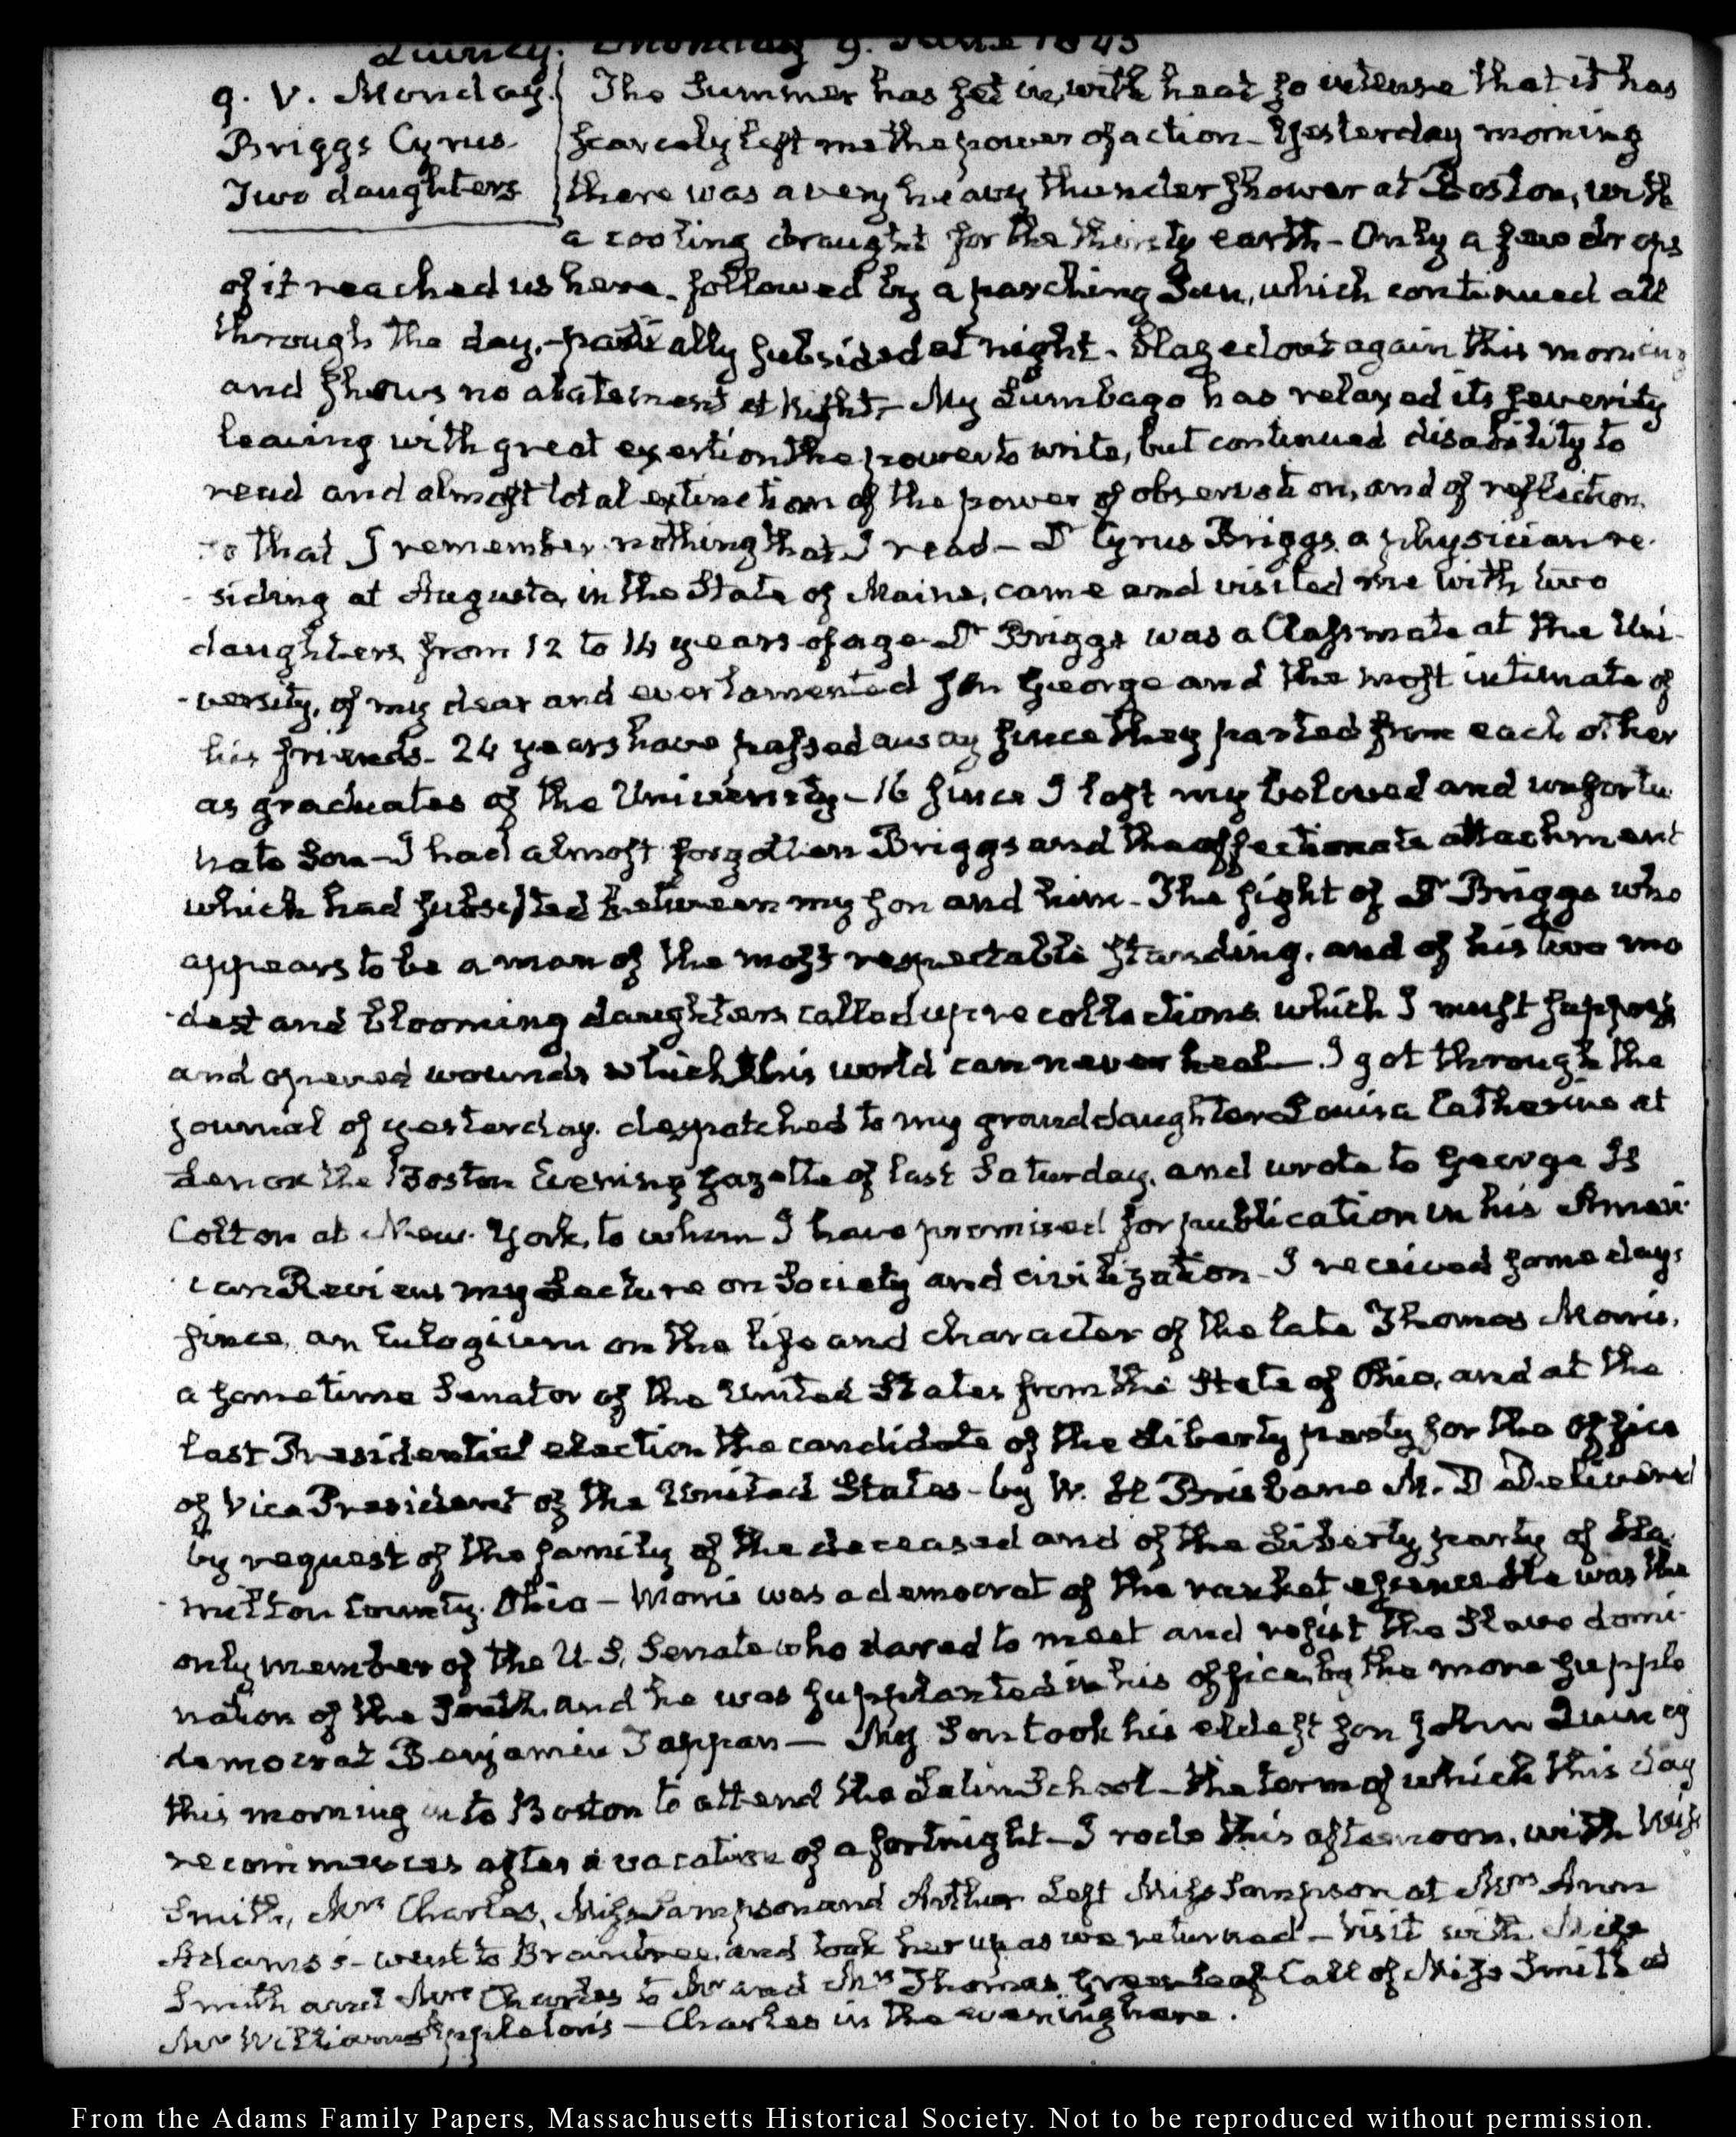 Quincy. Monday 9. June 1845
9. V. Monday.
Briggs Cyrus.
Two daughters
The Summer has set in, with heat so intense that it has
scarcely left me the power of action - Yesterday morning
there was a very heavy thunder shower at Boston, with
a cooling draught for the thirsty earth - Only a few drops
of it reached us here. followed by a parching Sun, which continued all
through the day, - partially subsided at night. blazed out again this morning
and shows no abatement at Night, - My Lumbago has relaxed its severity
leaving with great exertion the power to write, but continued disability to
read and almost total extinction of the power of observation, and of reflection.
so that I remember nothing that I read - Dr Cyrus Briggs, a physician re-
-siding at Augusta, in the State of Maine, came and visited me with two
daughters from 12 to 14 years of age - Dr Briggs was a Classmate at the Uni-
-versity, of my dear and ever lamented son George and the most intimate of
his friends - 24 years have passed away since they parted from each other
as graduates of the University - 16 since I lost my beloved and unfortu
nate Son - I had almost forgotten Briggs and the affectionate attachment
which had subsisted between my son and him - The sight of Dr Briggs who
appears to be a man of the most respectable standing, and of his two mo
-dest and blooming daughters called up recollections which I must suppress
and opened wounds which this world can never heal - I got through the
journal of yesterday. despatched to my granddaughter Louisa Catherine at
Lenox the Boston Evening Gazette of last Saturday, and wrote to George H
Colton at New-York, to whom I have promised for publication in his Ameri-
-can Review my Lecture on Society and civilization - I received some days
since, an Eulogium on the life and character of the late Thomas Morris,
a sometime Senator of the United States from the State of Ohio, and at the
last Presidential election the candidate of the Liberty party for the Office
of Vice President of the United States - by W. H Brisbane M. D Delivered
by request of the family of the deceased and of the Liberty party of Ha
-milton County. Ohio - Morris was a democrat of the rankest essence He was the
only member of the U. S. Senate who dared to meet and resist the Slave domi-
nation of the South, and he was supplanted in his office, by the more supple
democrat Benjamin Tappan - My Son took his eldest son John Quincy
this morning into Boston to attend the Latin School - the term of which this day
recommences after a vacation of a fortnight - I rode this afternoon, with Miss
Smith, Mrs Charles, Miss Sampson and Arthur Left Miss Sampson at Mrs Ann
Adams's - went to Braintree, and took her up as we returned - Visit with Miss
Smith and Mrs Charles to Mr and Mrs Thomas Greenleaf Call of Miss Smith at
Mr William Appleton's - Charles in the evening here.
From the Adams Family Papers, Massachusetts Historical Society. Not to be reproduced without permission.